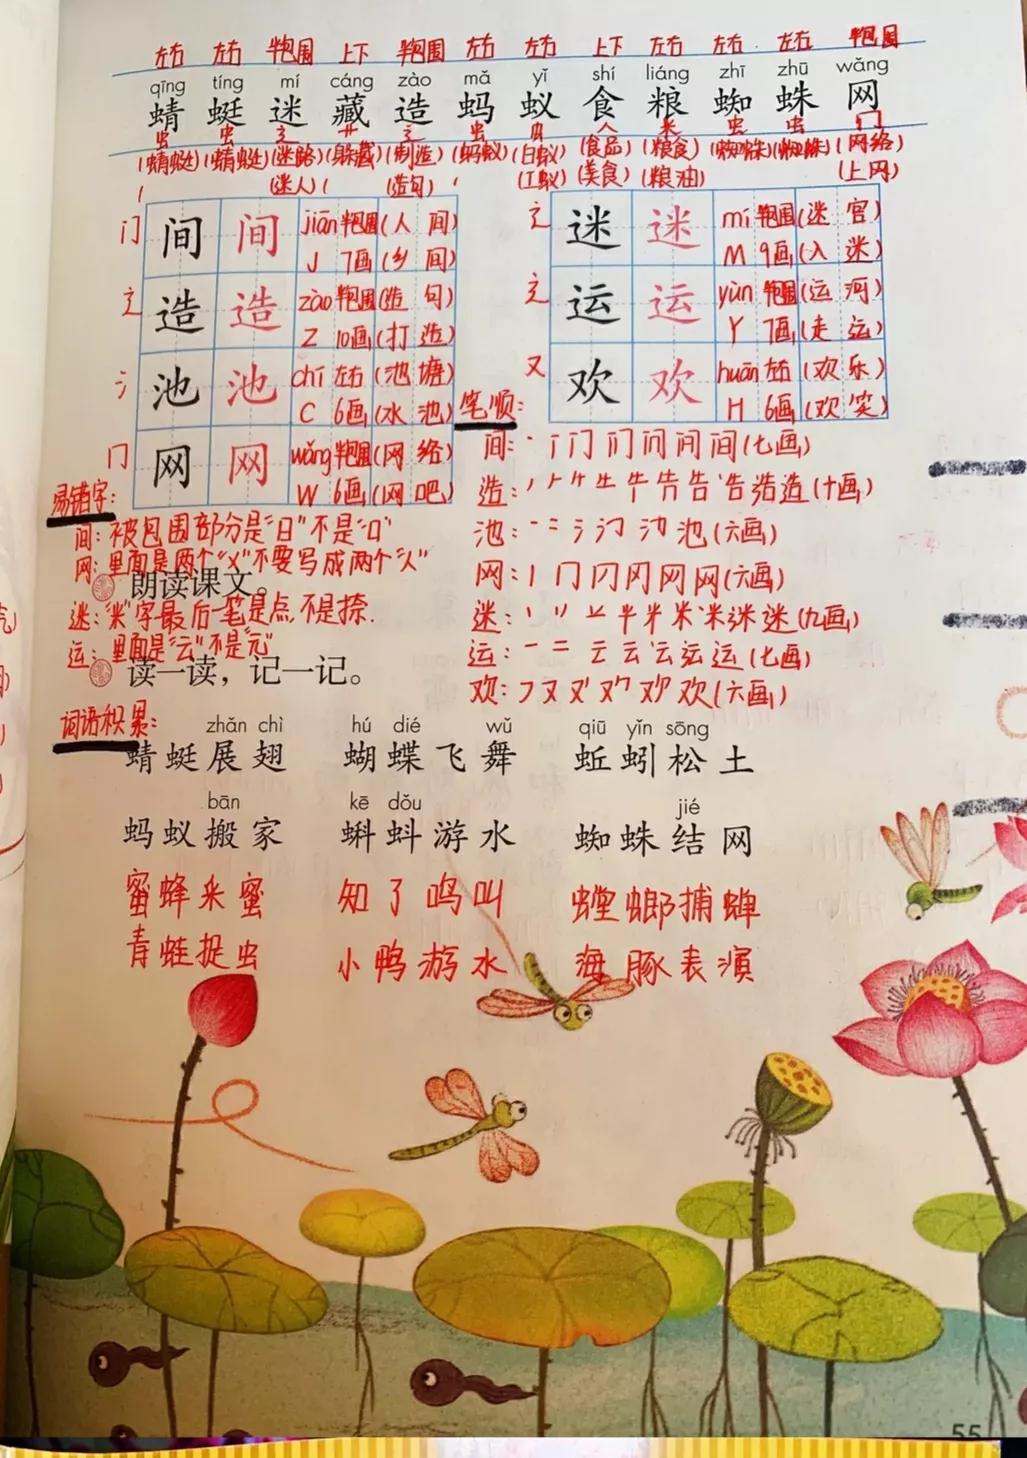 左右 左右 半包围 上下 半包围 左右 左右 上下 左右 左右 左右 半包围
qīng tíng mí cáng zào mǎ yǐ shí liáng zhī zhū wǎng
蜻 蜓 迷 藏 造 蚂 蚁 食 粮 蜘 蛛 网
虫 虫 辶 艹 辶 虫 虫 人 米 虫 虫 冂
(蜻蜓) (蜻蜓) (迷路) (躲藏) (制造) (蚂蚁) (白蚁) (食品) (粮食) (蜘蛛) (蜘蛛) (网络)
(迷人) (造句) (工蚁) (美食) (粮油) (上网)
门 间 间 jiān 半包围 (人间)
J 7画 (乡间)
辶 造 造 zào 半包围 (造句)
Z 10画 (打造)
氵 池 池 chí 左右 (池塘)
C 6画 (水池)
冂 网 网 wǎng 半包围 (网络)
W 6画 (网吧)
辶 迷 迷 mí 半包围 (迷宫)
M 9画 (入迷)
辶 运 运 yùn 半包围 (运河)
Y 7画 (走运)
又 欢 欢 huān 左右 (欢乐)
H 6画 (欢笑)
易错字:
间: 被包围部分是"日"不是"口"
网: 里面是两个"乂"不要写成两个"人"
朗读课文。
迷: "米"字最后一笔是点,不是捺.
运: 里面是"云"不是"元"
笔顺:
间: (七画)
造: (十画)
池: (六画)
网: (六画)
迷: (九画)
运: (七画)
欢: (六画)
读一读，记一记。
词语积累:
zhǎn chì hú dié wǔ qiū yǐn sōng
蜻蜓展翅 蝴蝶飞舞 蚯蚓松土
bān kē dǒu jié
蚂蚁搬家 蝌蚪游水 蜘蛛结网
蜜蜂采蜜 知了鸣叫 螳螂捕蝉
青蛙捉虫 小鸭游水 海豚表演
55